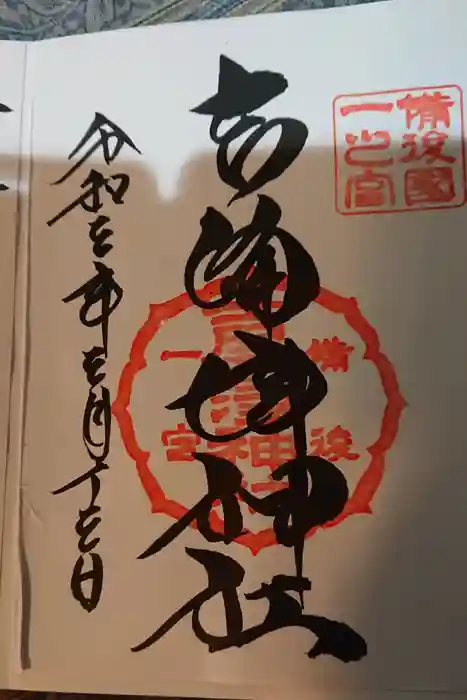 備後國
一之宮
吉備津神社
備後
吉備津神社
一宮
令和三年三月十三日